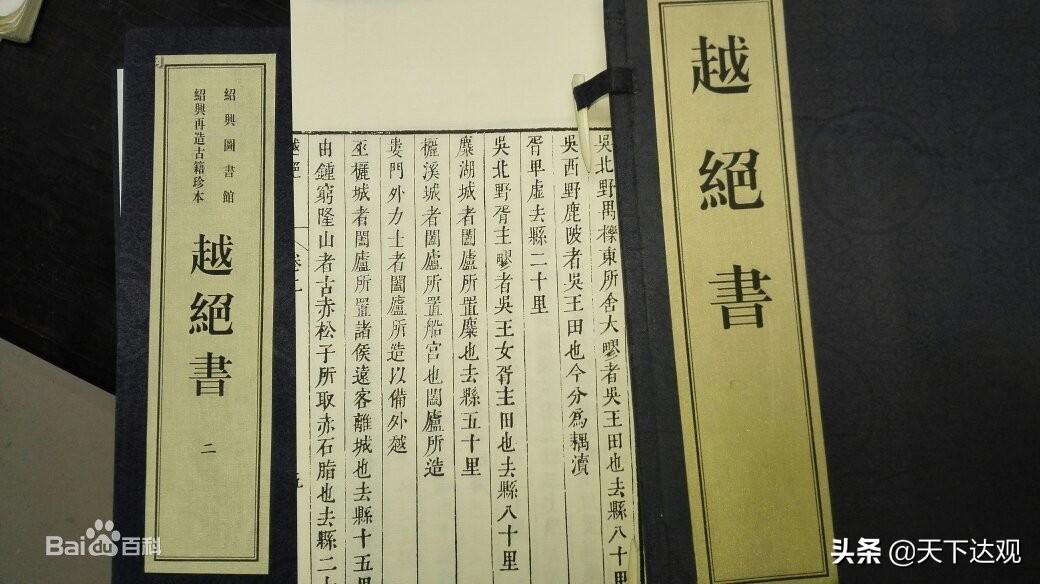 越絕書
吳北野禺櫟東所舍大疁者吳王田也去縣八十里
吳西野鹿陂者吳王田也今分爲耦瀆
胥卑虛去縣二十里
吳北野胥主疁者吳王女胥主田也去縣八十里
麋湖城者闔廬所置麋也去縣五十里
欐溪城者闔廬所置船宮也闔廬所造
婁門外力士者闔廬所造以備外越
巫欐城者闔廬所置諸侯遠客離城也去縣十五里
由鍾窮隆山者古赤松子所取赤石脂也去縣二十
越絕 卷二 五
紹興圖書館
紹興再造古籍珍本
越絕書
二
Bai百科
头条 @天下达观